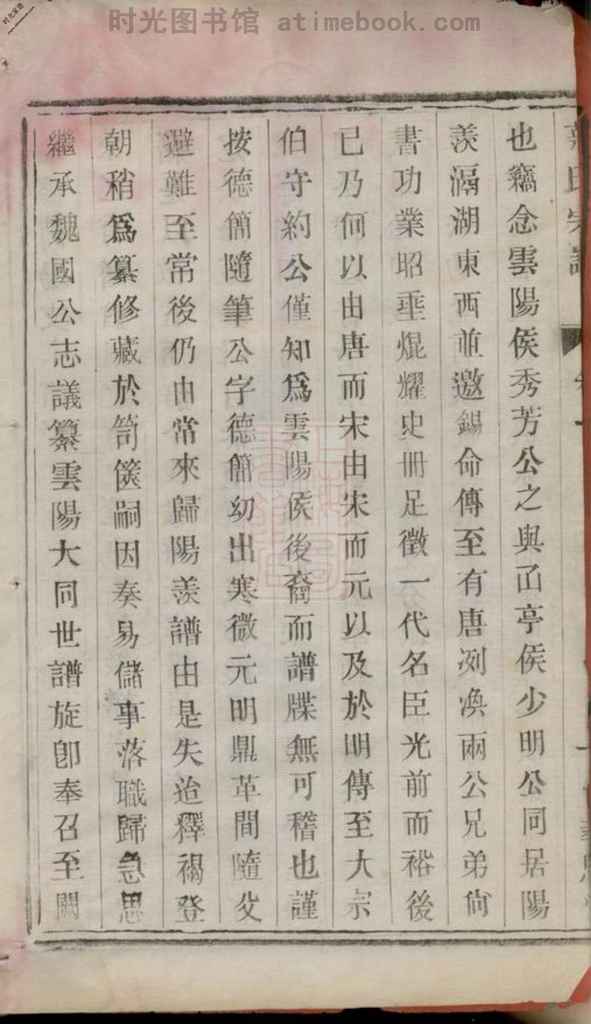 时光图书馆 atimebook.com
也竊念雲陽侯秀芳公之與函亭侯少明公同居陽
羨滆湖東西並邀錫命傳至有唐冽渙兩公兄弟尙
書功業昭垂焜耀史冊足徵一代名臣光前而裕後
已乃何以由唐而宋由宋而元以及於明傳至大宗
伯守約公僅知爲雲陽侯後裔而譜牒無可稽也謹
按德簡隨筆公字德簡幼出寒微元明鼎革間隨父
避難至常後仍由常來歸陽羨譜由是失迨釋褐登
朝稍爲纂修藏於笥篋嗣因奏易儲事落職歸急思
繼承魏國公志議纂雲陽大同世譜旋卽奉召至闕